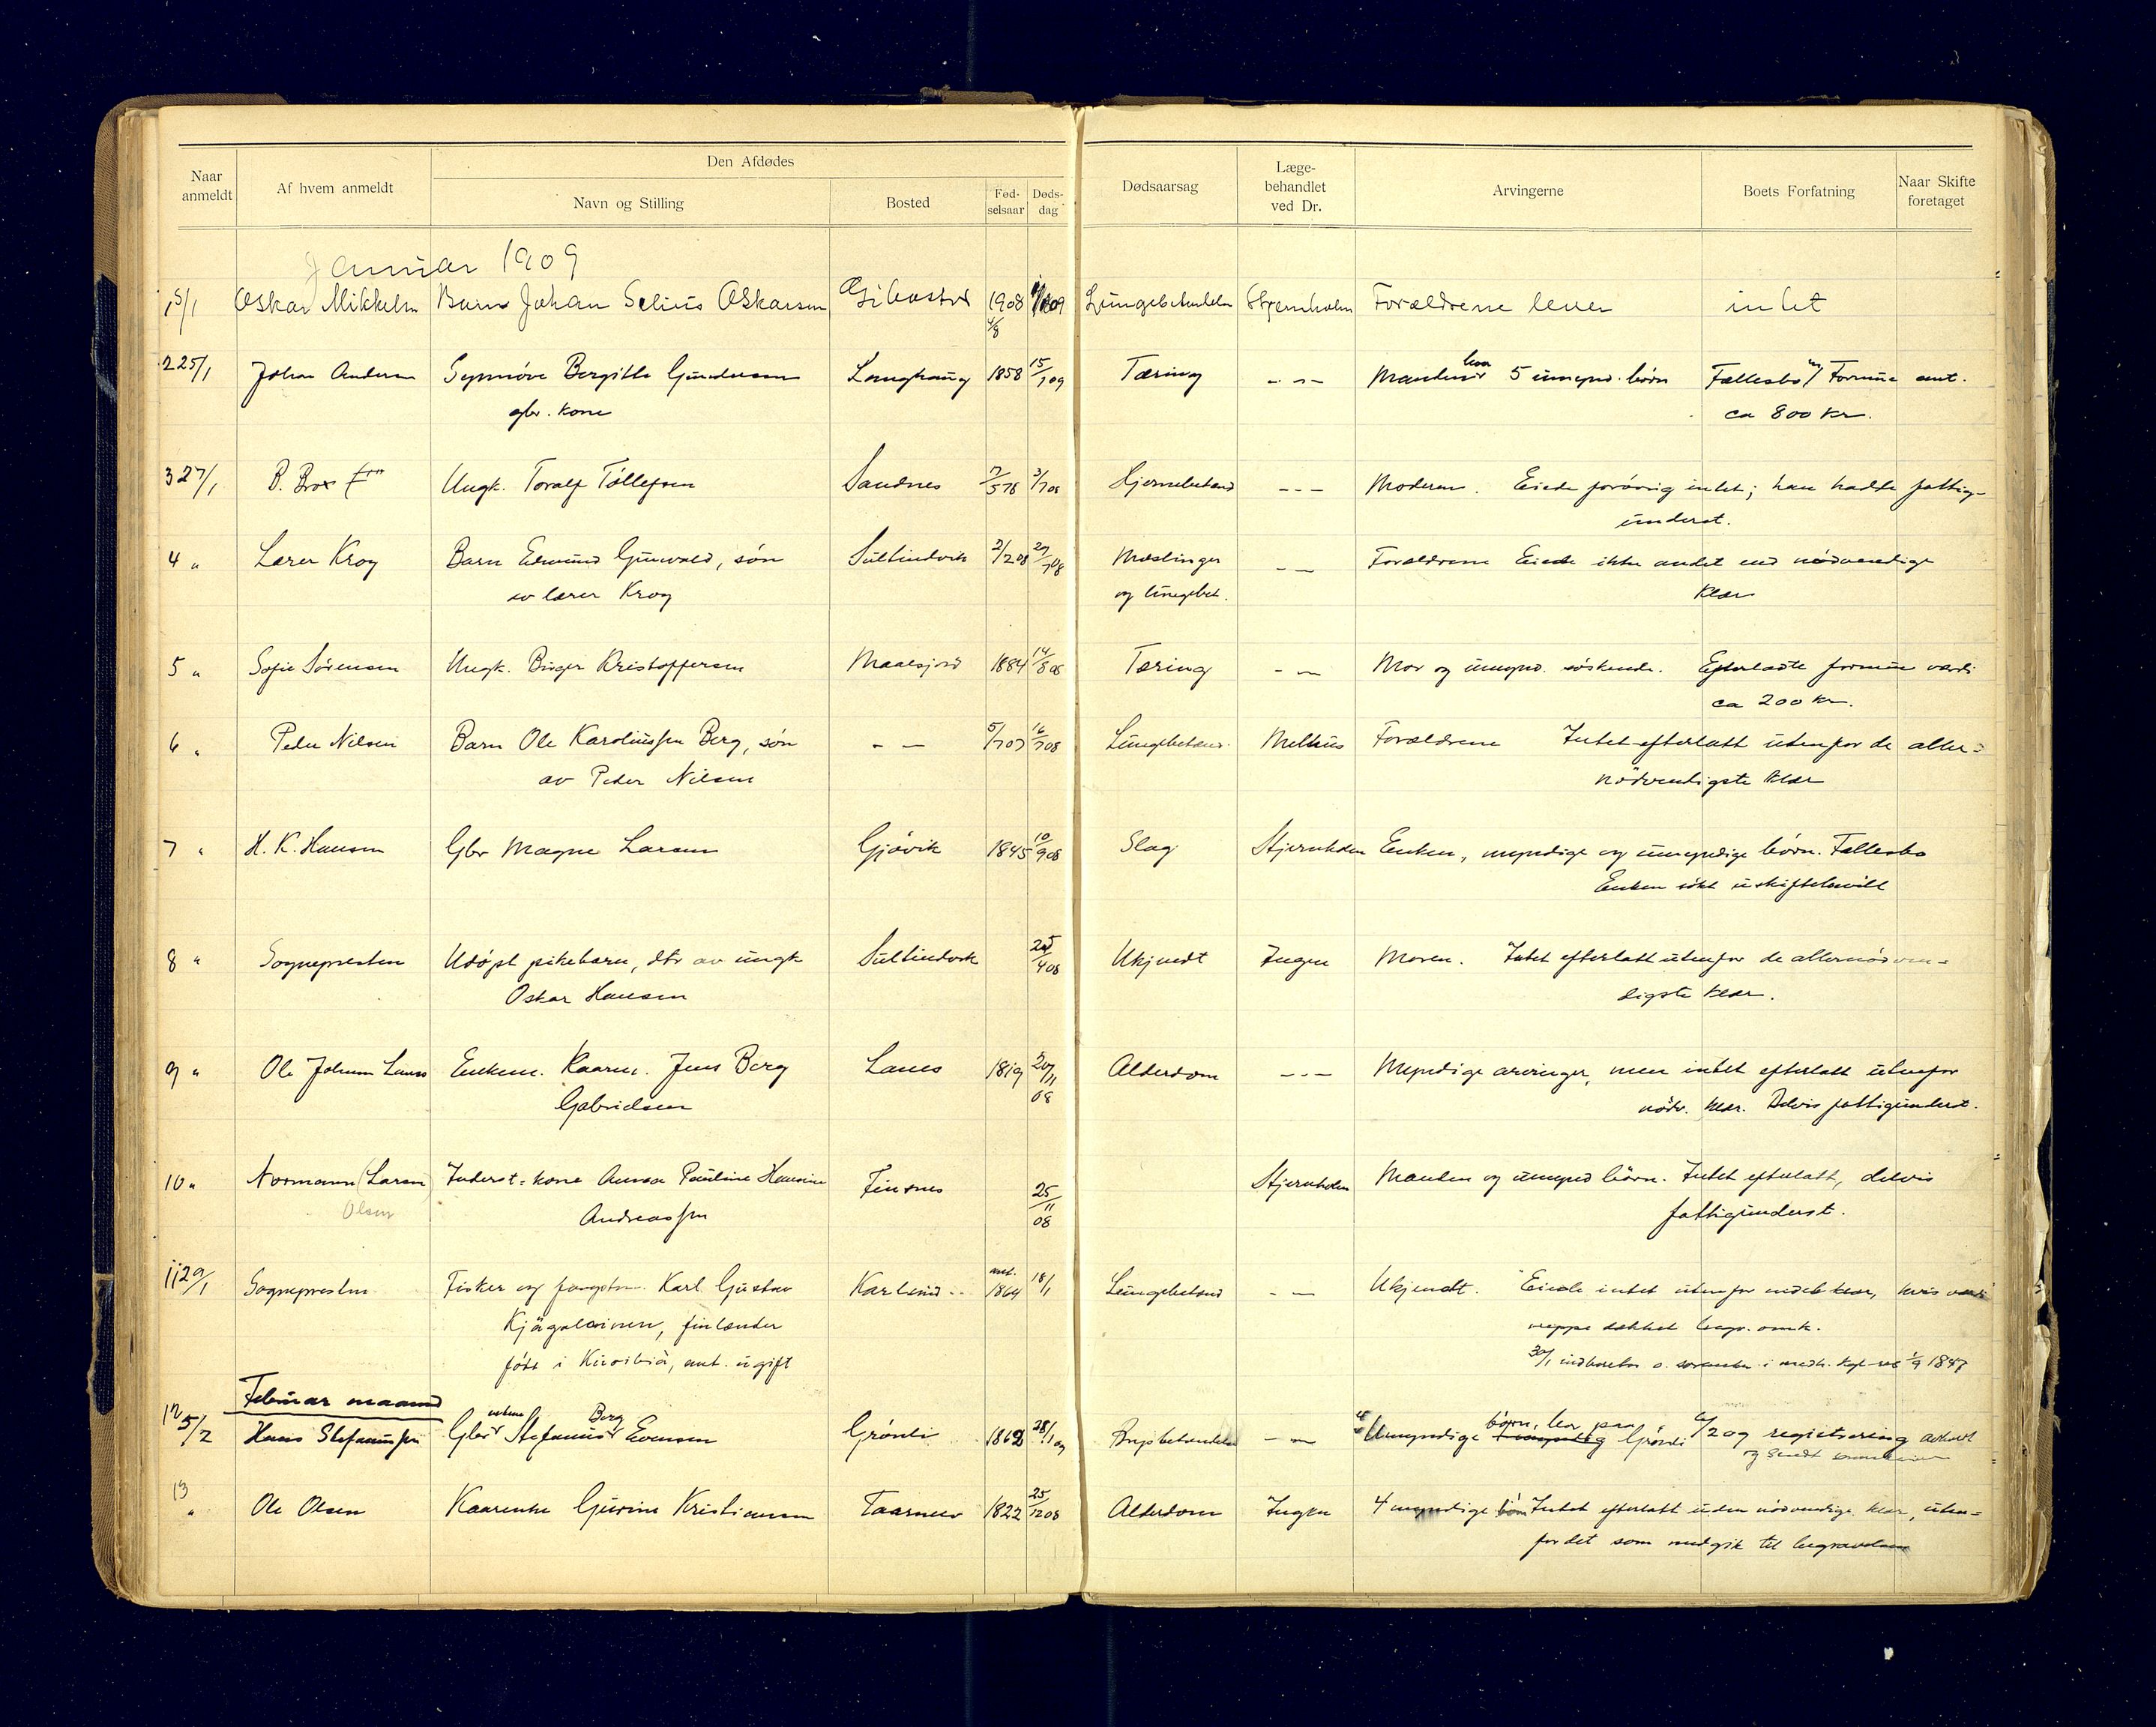 Naar anmeldt
Af hvem anmeldt
Den Afdødes
Navn og Stilling
Bosted
Fød-selsaar
Døds-dag
Dødsaarsag
Læge-behandlet ved Dr.
Arvingerne
Boets Forfatning
Naar Skifte foretaget
Januar 1909
1 5/1 Oskar Mikkelsn Barn Johan Selius Oskarsen Gibostad 1908 4/8 09 Lungebetændelse Stjernholm Forældrene lever intet
2 25/1 Johan Andersen Synnöve Bergitte Gundersen Langhaug 1858 15/1 09 Tæring - - - Manden har 5 umynd. börn Fællesbo Formue ant.
gbr. kone ca 800 Kr.
3 27/1 B. Brox Ungk. Toralf Töllefsen Sandnes 7/5 78 3/7 08 Hjernebetænd - - - Moderen. Eiede forövrig intet; han hadde fattig-
underst.
4 " Lærer Krog Barn Edmund Gunvald, sön Sultindvik 2/2 08 27/7 08 Mæslinger - - Forældrene Eiede ikke andet end nödvendige
av lærer Krog og lungebet. klær
5 " Sofie Sörensen Ungk. Birger Kristoffersen Maalsjord 1884 14/8 08 Tæring - - Mor og umynd. söskende. Efterladte formue værdi
ca 200 Kr.
6 " Peder Nilsen Barn Ole Karoliussen Berg, sön - - 5/7 07 16/7 08 Lungebetænd. Melhus Forældrene Intet efterlatt utenfor de aller=
av Peder Nilsen nödvendigste klær
7 " H. K. Hansen Gbr Magne Larsen Gjövik 1845 10/9 08 Slag Stjernholm Enken, myndige og umyndige börn. Fællesbo
Enken sökt uskiftebevill
8 " Sognepresten Udöpt pikebarn, dtr av ungk Sultindvik 25/4 08 Ukjendt Ingen Moren. Intet efterlatt utenfor de allernödven=
Oskar Hansen digste klær.
9 " Ole Johan Lanes Enkem. Kaarm. Jens Berg Lanes 1819 20/11 08 Alderdom - - - Myndige arvinger, men intet efterlatt utenfor
Gabrielsen nödv. klær. Delvis fattigunderst.
10 " Normann (Larsen Inderst= kone Anna Pauline Hansine Finsnes 25/11 08 Stjernholm Manden og umynd börn. Intet efterlatt, delvis
Olsen Andreassen fattigunderst.
11 29/1 Sognepresten Fisker og fangstm. Karl Gustav Karlsund 1864 18/1 Lungebetænd - - Ukjendt. Eiede intet utenfor endel klær, hvis værdi
finlænder neppe dækket begr. omk.
födt i ant. ugift
Februar maaned
12 5/2 Hans Stefanussen Gbr Stefanus Berg Evensen Grönli 1862 28/1 09 - - Umyndige börn, bor paa Grönli 09 registrering avholdt
13 " Ole Olsen Kaarenke Gurine Kristiansen Taarnelv 1822 25/12 08 Alderdom Ingen 4 myndige börn Intet efterlatt uden nödvendige klær, uten=
for det som medgik til begravelsen